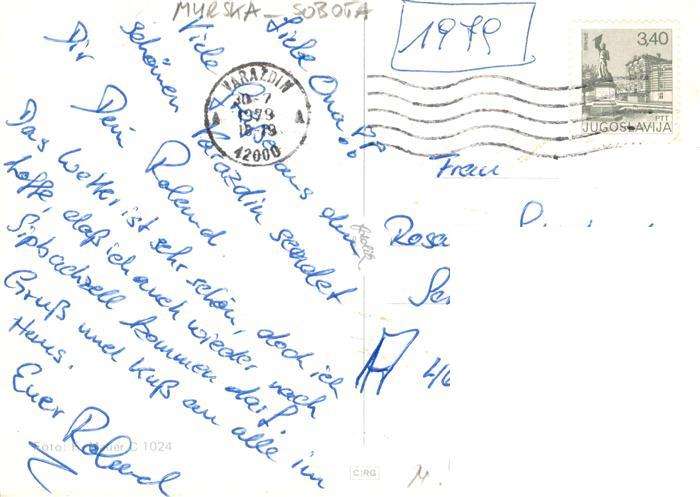 MURSKA - SOBOTA
1979
Liebe Oma!
Viele
aus dem
schönen Varazdin sendet
Dir Dein Roland.
Das Wetter ist sehr schön, doch ich
hoffe, daß ich auch wieder nach
Sipbachzell kommen darf.
Gruß und Kuß an alle im
Haus.
Euer Roland
VARAŽDIN
1979
42000
3,40
PTT
JUGOSLAVIJA
Frau
Rosa
A
C 1024
CIRG
M.